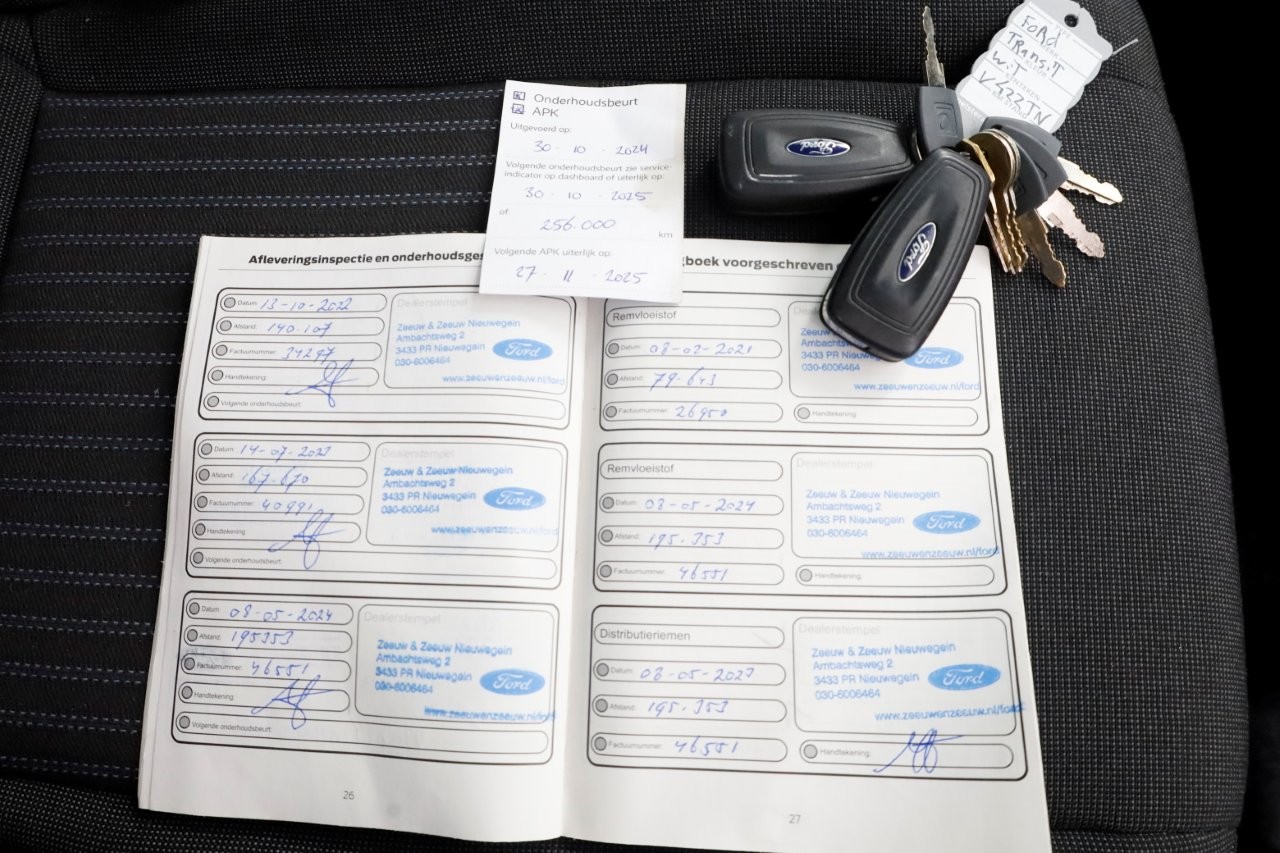 Onderhoudsbeurt
APK
Uitgevoerd op:
30 - 10 - 2024
Volgende onderhoudsbeurt zie service
indicator op dashboard of uiterlijk op:
30 - 10 - 2025
of
256.000
km
Volgende APK uiterlijk op:
27 - 11 - 2025
FORD
TRANSIT
WIT
KENTEKEN
Ford
Ford
Afleveringsinspectie en onderhoudsges
Datum: 13-10-2022
Afstand: 140.107
Factuurnummer: 34297
Handtekening:
Volgende onderhoudsbeurt:
Dealerstempel
Zeeuw & Zeeuw Nieuwegein
Ambachtsweg 2
3433 PR Nieuwegein
030-6006464
Ford
www.zeeuwenzeeuw.nl/ford
Datum: 14-07-2023
Afstand: 167-670
Factuurnummer: 40991
Handtekening
Volgende onderhoudsbeurt:
Dealerstempel
Zeeuw & Zeeuw Nieuwegein
Ambachtsweg 2
3433 PR Nieuwegein
030-6006464
Ford
www.zeeuwenzeeuw.nl/ford
Datum: 08-05-2024
Afstand: 195353
Factuurnummer: 46551
Handtekening:
Volgende onderhoudsbeurt:
Dealerstempel
Zeeuw & Zeeuw Nieuwegein
Ambachtsweg 2
3433 PR Nieuwegein
030-6006464
Ford
www.zeeuwenzeeuw.nl/ford
26
gboek voorgeschreven
Remvloeistof
Datum: 08-02-2021
Afstand: 79-643
Factuurnummer: 26950
Zeeuw &
Ambachtsweg
3433 PR Nieuweg
030-6006464
Ford
www.zeeuwenzeeuw.nl/ford
Handtekening:
Remvloeistof
Datum: 08-05-2024
Afstand: 195.353
Factuurnummer: 46551
Dealerstempel
Zeeuw & Zeeuw Nieuwegein
Ambachtsweg 2
3433 PR Nieuwegein
030-6006464
Ford
www.zeeuwenzeeuw.nl/ford
Handtekening:
Distributieriemen
Datum: 08-05-2024
Afstand: 195.353
Factuurnummer: 46551
Dealerstempel
Zeeuw & Zeeuw Nieuwegein
Ambachtsweg 2
3433 PR Nieuwegein
030-6006464
Ford
www.zeeuwenzeeuw.nl/ford
Handtekening:
27